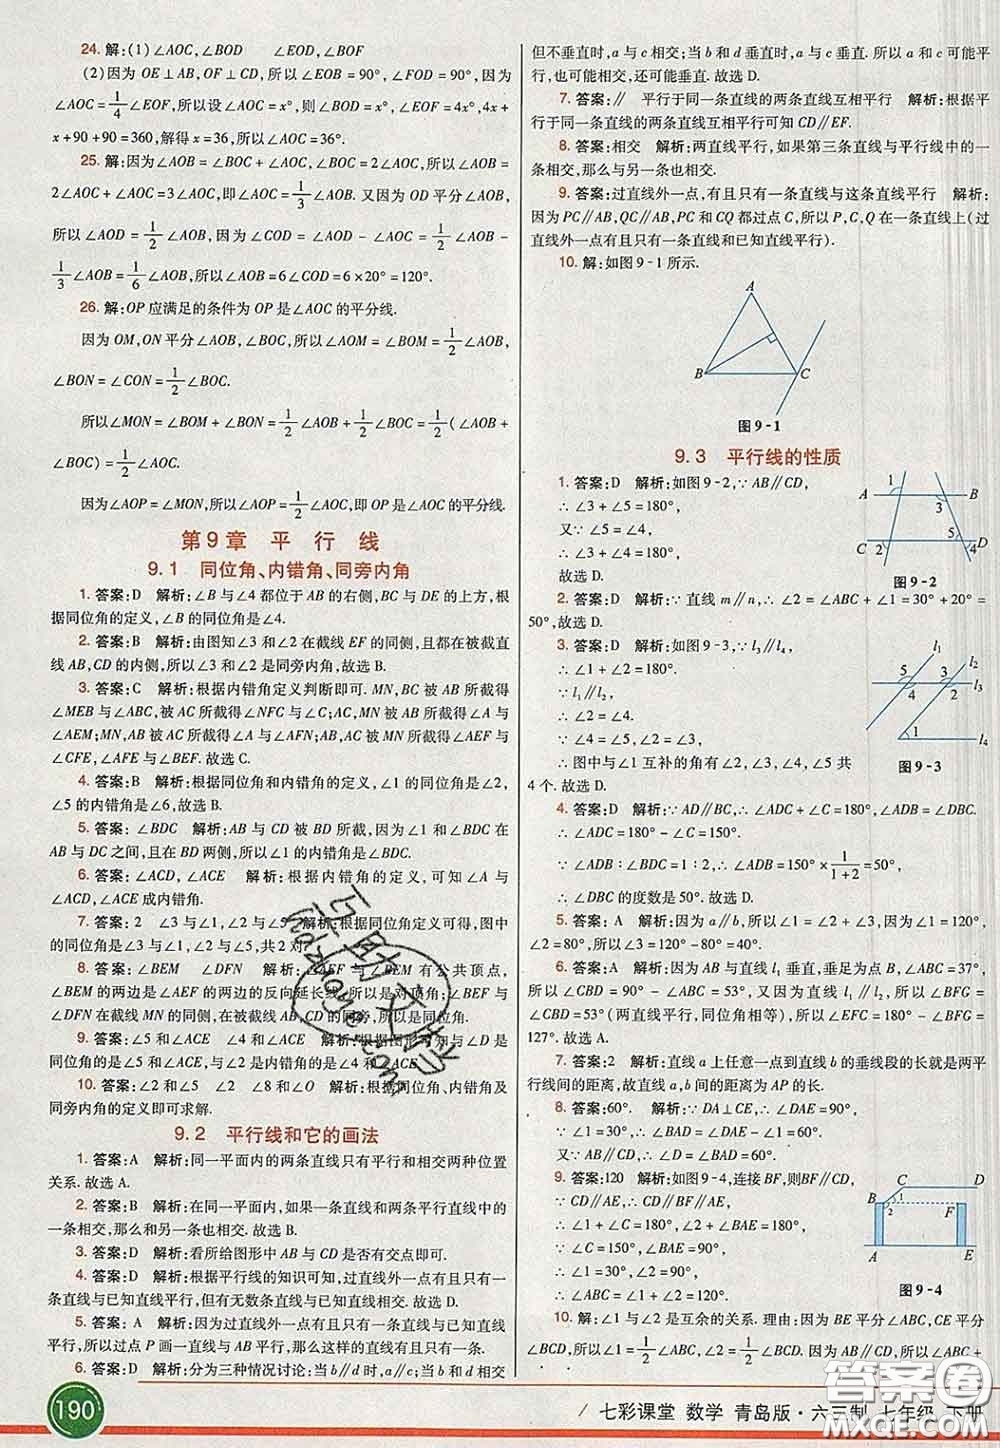 24. 解:(1)∠AOC,∠BOD　∠EOD,∠BOF
(2)因为OE⊥AB,OF⊥CD,所以∠EOB=90°,∠FOD=90°,因为
∠AOC=1/4∠EOF,所以设∠AOC=x°,则∠BOD=x°,∠EOF=4x°,4x
+x+90+90=360,解得x=36,所以∠AOC=36°.
25. 解:因为∠AOB=∠BOC+∠AOC,∠BOC=2∠AOC,所以∠AOB=
2∠AOC+∠AOC=3∠AOC,即∠AOC=1/3∠AOB.又因为OD平分∠AOB,
所以∠AOD=1/2∠AOB,所以∠COD=∠AOD-∠AOC=1/2∠AOB-
1/3∠AOB=1/6∠AOB,所以∠AOB=6∠COD=6×20°=120°.
26. 解:OP应满足的条件为OP是∠AOC的平分线.
因为OM,ON平分∠AOB,∠BOC,所以∠AOM=∠BOM=1/2∠AOB,
∠BON=∠CON=1/2∠BOC.
所以∠MON=∠BOM+∠BON=1/2∠AOB+1/2∠BOC=1/2(∠AOB+
∠BOC)=1/2∠AOC.
因为∠AOP=∠MON,所以∠AOP=1/2∠AOC,即OP是∠AOC的平分线.
第9章 平行线
9.1 同位角、内错角、同旁内角
1. 答案:D 解析:∠B与∠4都位于AB的右侧,BC与DE的上方,根
据同位角的定义,∠B的同位角是∠4.
2. 答案:B 解析:由图知∠3和∠2在截线EF的同侧,且都在被截直
线AB,CD的内侧,所以∠3和∠2是同旁内角,故选B.
3. 答案:C 解析:根据内错角定义判断即可.MN,BC被AB所截得
∠MEB与∠ABC,被AC所截得∠NFC与∠C;AC,MN被AB所截得∠A与
∠AEM;MN,AB被AC所截得∠A与∠AFN;AB,AC被MN所截得∠AEF与
∠CFE,∠AFE与∠BEF.故选C.
4. 答案:B 解析:根据同位角和内错角的定义,∠1的同位角是∠2,
∠5的内错角是∠6,故选B.
5. 答案:∠BDC 解析:AB与CD被BD所截,因为∠1和∠BDC在
AB与DC之间,且在BD两侧,所以∠1的内错角是∠BDC.
6. 答案:∠ACD,∠ACE 解析:根据内错角的定义,可知∠A与
∠ACD,∠ACE成内错角.
7. 答案:2 ∠3与∠1,∠2与∠5 解析:根据同位角定义可得,图中
的同位角为∠3与∠1,∠2与∠5,共2对.
8. 答案:∠BEM ∠DFN 解析:∠AEF与∠BEM有公共顶点,
∠BEM的两边是∠AEF的两边的反向延长线,所以是对顶角;∠BEM与
∠DFN在截线MN的同侧,在被截线AB,CD的同旁,所以是同位角.
9. 答案:∠5和∠ACE ∠4和∠ACE 解析:根据图形可知与∠D是
同位角的是∠5和∠ACE,与∠2是内错角的是∠4和∠ACE.
10. 答案:∠2和∠5 ∠2 ∠8和∠ACE 解析:根据同位角、内错角及
同旁内角的定义即可求解.
9.2 平行线和它的画法
1. 答案:A 解析:同一平面内的两条直线只有平行和相交两种位置
关系.故选A.
2. 答案:B 解析:在同一平面内,如果一条直线和两条平行直线中的
一条相交,那么和另一条也相交.故选B.
3. 答案:D 解析:看所给图形中AB与CD是否有交点即可.
4. 答案:D 解析:根据平行线的知识可知,过直线外一点有且只有一
条直线与已知直线平行,但有无数条直线与已知直线相交.故选D.
5. 答案:A 解析:因为过直线外一点有且只有一条直线与已知直线
平行,所以过点P画一直线与AB平行,那么这样的直线有且只有一条.
6. 答案:D 解析:分为三种情况讨论:当b∥d时,a∥c;当b和d相交
但不垂直时,a与c相交;当b和d垂直时,a与c垂直.所以a和c可能平
行,也可能相交,还可能垂直.故选D.
7. 答案:∥ 平行于同一条直线的两条直线互相平行 解析:根据平
行于同一条直线的两条直线互相平行可知CD∥EF.
8. 答案:相交 解析:两直线平行,如果第三条直线与平行线中的一
条相交,那么与另一条也相交.
9. 答案:过直线外一点,有且只有一条直线与这条直线平行 解析:
因为PC∥AB,QC∥AB,PC和CQ都过点C,所以P,C,Q在一条直线上(过
直线外一点有且只有一条直线和已知直线平行).
10. 解:如图9-1所示.
A
B C
图9-1
9.3 平行线的性质
1. 答案:D 解析:如图9-2,∵AB∥CD,
∴∠3+∠5=180°.
又∵∠5=∠4,
∴∠3+∠4=180°,
故选D.
1 A B 3 5 C 2 4 D
图9-2
2. 答案:D 解析:∵直线m∥n,∴∠2=∠ABC+∠1=30°+20°=
50°,故选D.
3. 答案:D 解析:如图9-3,∵l3∥l4,
∴∠1+∠2=180°.
∵l1∥l2,
∴∠2=∠4.
∵∠4=∠5,∠2=∠3,
∴图中与∠1互补的角有∠2,∠3,∠4,∠5共
4个.故选D.
l1 l2 5 3 4 2 l3 1 l4
图9-3
4. 答案:D 解析:∵AD∥BC,∴∠ADC+∠C=180°,∠ADB=∠DBC.
∴∠ADC=180°-∠C=150°.
∵∠ADB∶∠BDC=1∶2,∴∠ADB=150°×1/(1+2)=50°,
∴∠DBC的度数是50°.故选D.
5. 答案:A 解析:因为a∥b,所以∠1=∠2+∠3,因为∠1=120°,
∠2=80°,所以∠3=120°-80°=40°.
6. 答案:A 解析:因为AB与直线l1垂直,垂足为点B,∠ABC=37°,
所以∠CBD=90°-∠ABC=53°,又因为直线l1∥l2,所以∠BFG=
∠CBD=53°(两直线平行,同位角相等),所以∠EFC=180°-∠BFG=
127°.
7. 答案:2 解析:直线a上任意一点到直线b的垂线段的长就是两平
行线间的距离,故直线a,b间的距离为AP的长.
8. 答案:60°. 解析:∵DA⊥CE,∴∠DAE=90°.∵∠1=30°,
∴∠BAD=60°.又∵AB∥CD,∴∠D=∠BAD=60°.
9. 答案:120 解析:如图9-4,连接BF,则BF∥CD.
∵CD∥AE,∴CD∥BF∥AE,
∴∠1+∠C=180°,∠2+∠BAE=180°.
∵∠C=150°,∠BAE=90°,
∴∠1=30°,∠2=90°,
∴∠ABC=∠1+∠2=120°.
C D B 1 2 F A E
图9-4
10. 解:∠1与∠2是互余的关系.理由:因为BE平分∠ABD,DE平分
∠BDC,所以∠1=1/2∠ABD,∠2=1/2∠BDC,所以∠1+∠2=1/2∠ABD+
190
七彩课堂 数学 青岛版·六三制 七年级 下册
答案圈
MXQE.COM